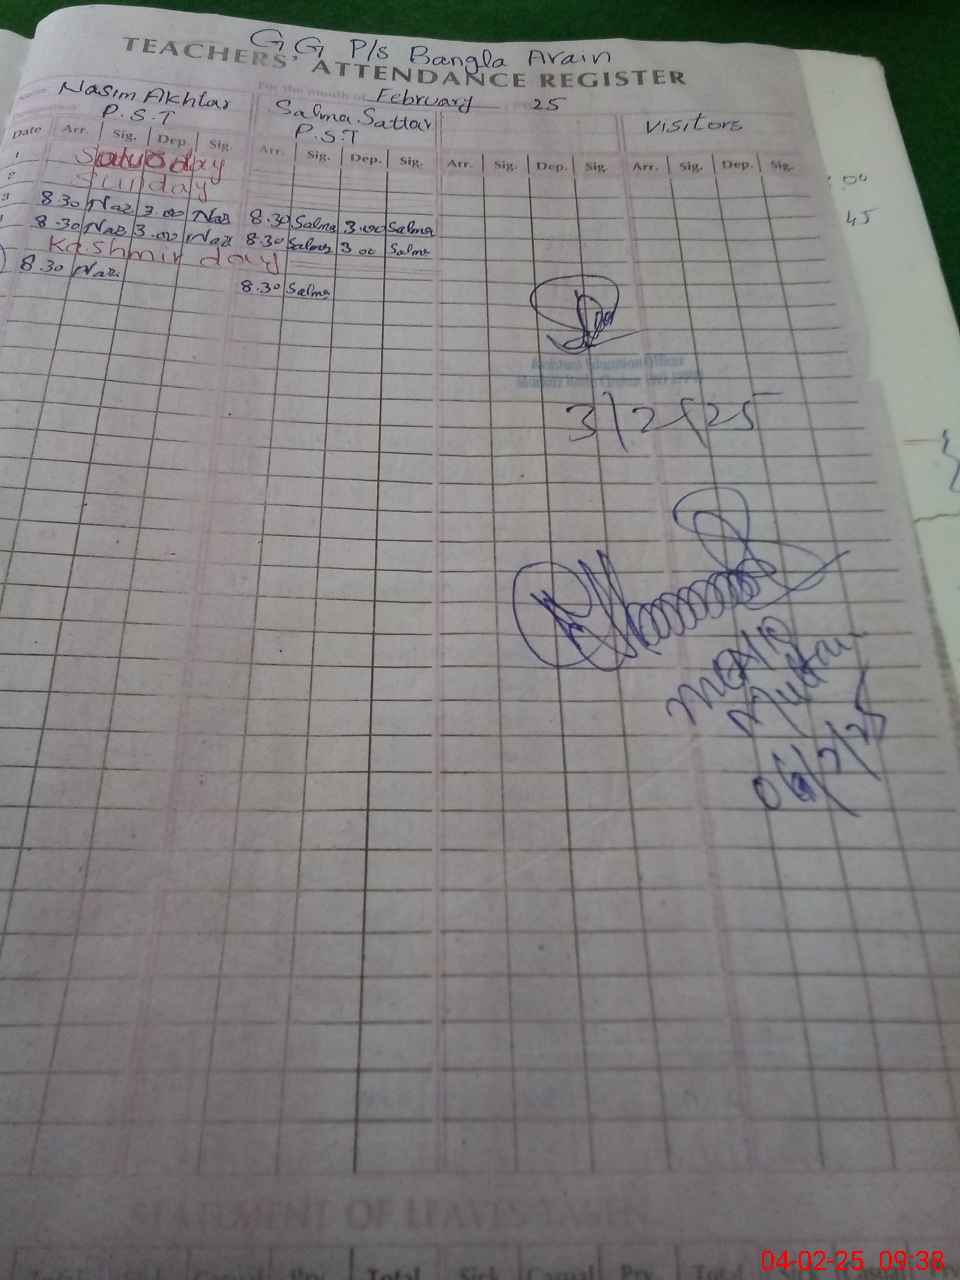 GG P/s Bangla Arain
TEACHERS' ATTENDANCE REGISTER
For the month of February 25
Nasim Akhtar Salma Sattar Visitors
P.S.T P.S.T
Date Arr. Sig. Dep. Sig. Arr. Sig. Dep. Sig. Arr. Sig. Dep. Sig. Arr. Sig. Dep. Sig.
1 Saturday
2 Sunday
3 8.30 Naz 3.00 Naz 8.30 Salma 3.00 Salma
8.30 Naz 3.00 Naz 8.30 Salma 3.00 Salma
Kashmir day
8.30 Naz 8.30 Salma
45
3/2/25
06/2/25
STATEMENT OF LEAVES TAKEN
Total Sick Casual Prv. Total
04-02-25 09:38